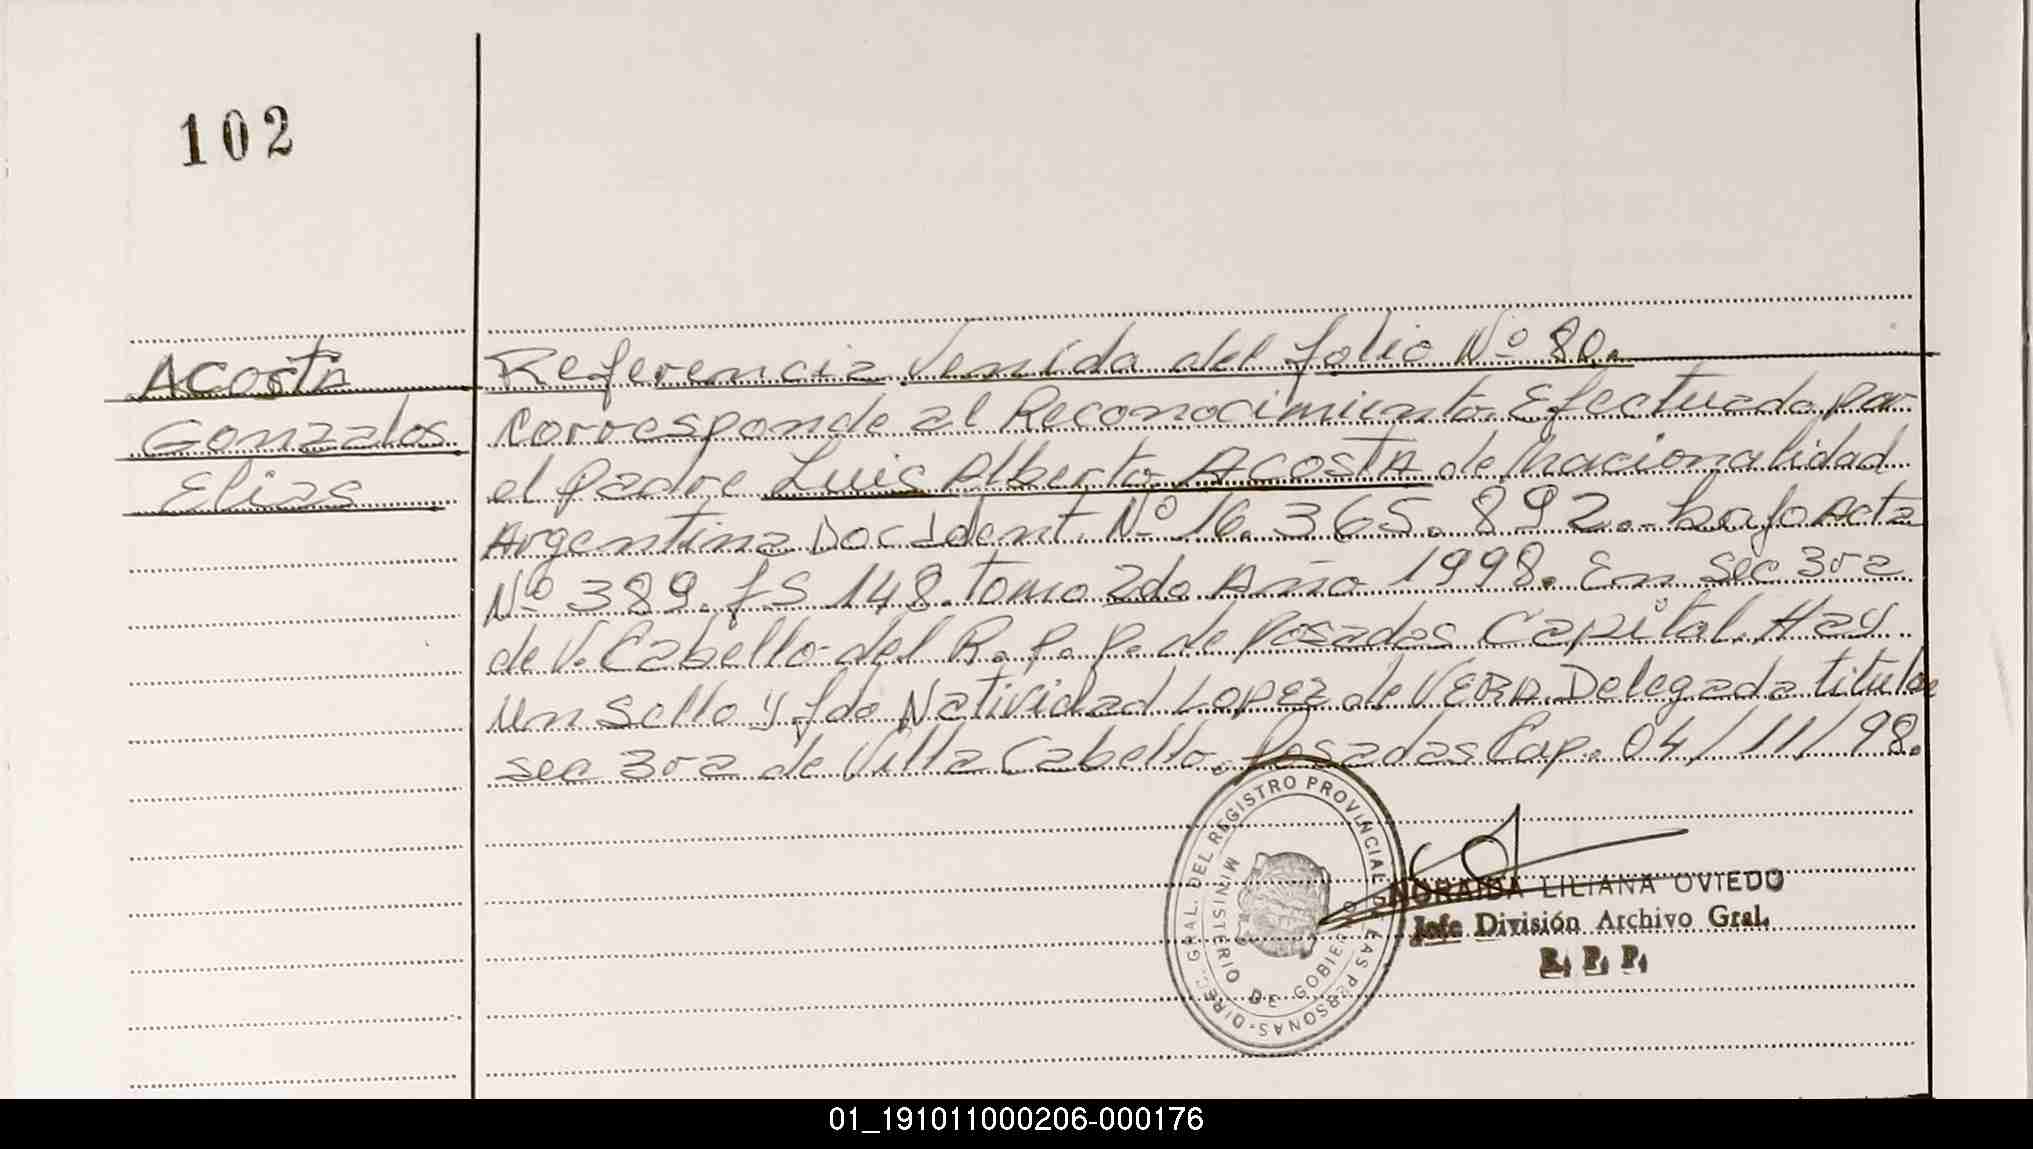 102
Acosta
Gonzalos
Elias
Referencia Venida del folio Nº 80.
Corresponde al Reconocimiento Efectuado por
el padre Luis Alberto Acosta de Nacionalidad
Argentina Doc Ident. Nº 16.365.892.- bajo Acta
Nº 389. fs 148. tomo 2do Año 1998. En sec 3ra
de V. Cabello-del R. P. P. de Posadas Capital. Hay
un sello y fdo Natividad Lopez de VERA Delegada titular
sec 3ra de Villa Cabello. Posadas Cap. 04/11/98.
DIREC. GRAL. DEL REGISTRO PROVINCIAL DE LAS PERSONAS
MINISTERIO DE GOBIERNO
NORAIDA LILIANA OVIEDO
Jefe División Archivo Gral.
R. P. P.
01_191011000206-000176